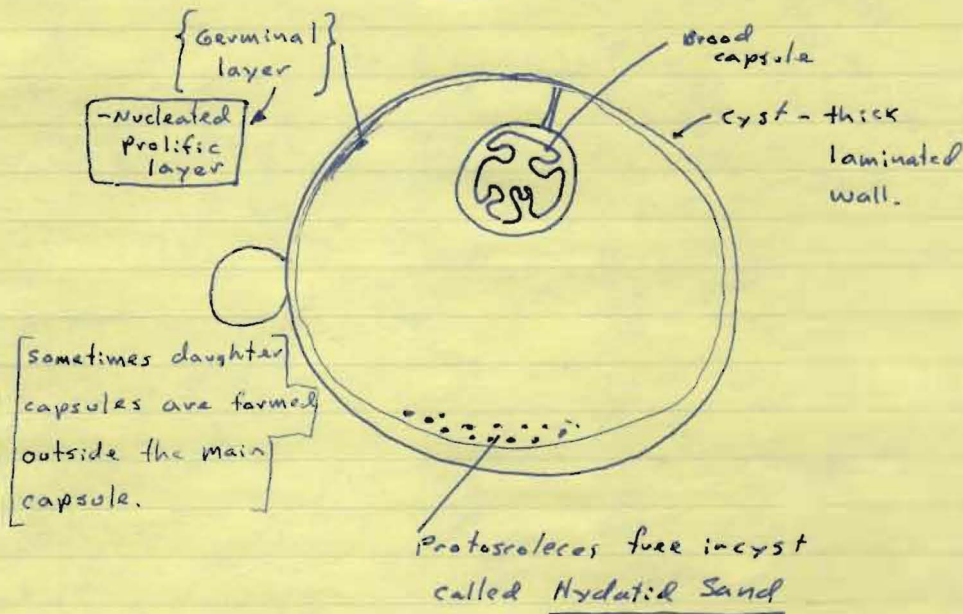 Germinal
layer
-Nucleated
Prolific
layer
Brood
capsule
cyst - thick
laminated
wall.
sometimes daughter
capsules are formed
outside the main
capsule.
Protoscoleces free in cyst
called Hydatid Sand